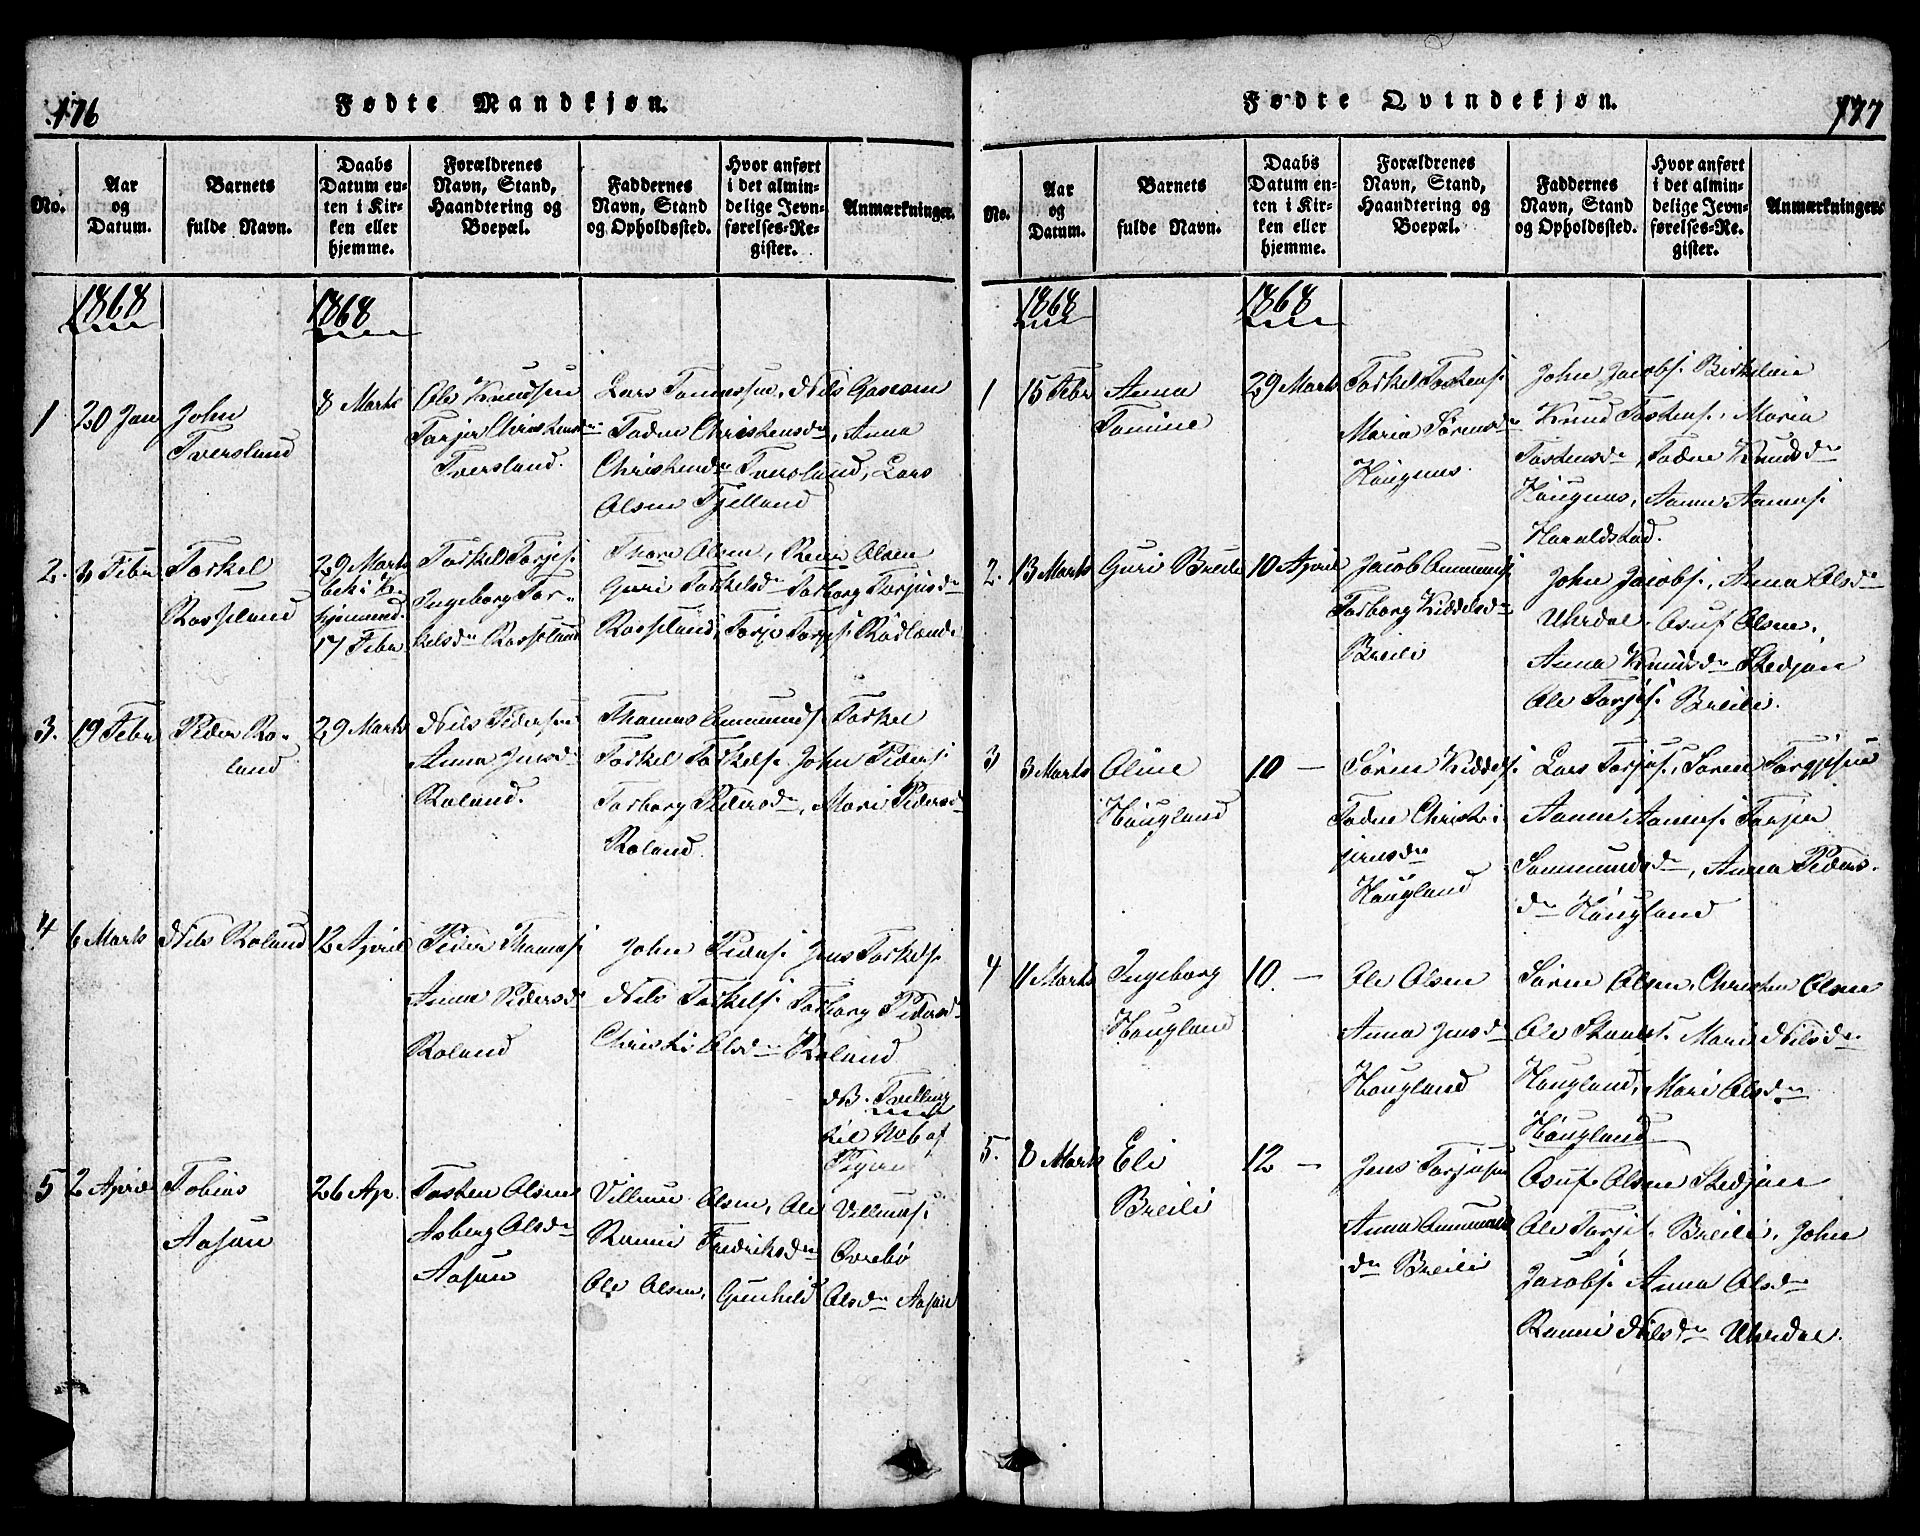 176
Fødte Mandkjøn.
No.
Aar
og
Datum.
Barnets
fulde Navn.
Daabs
Datum en-
ten i Kir-
ken eller
hjemme.
Forældrenes
Navn, Stand,
Haandtering og
Boepæl.
Faddernes
Navn, Stand
og Opholdssted.
Hvor anført
i det almin-
delige Jevn-
førelses-Re-
gister.
Anmærkninger.
1868
1868
1
20 Jan
John
Tversland
8 Marts
Ole Knudsen
Tarjer Christensdr
Tversland.
Lars Tomassen, Nils
Todne Christensdr, Anna
Christensdr Tversland, Lars
Olsen Fjelland
2.
3 Febr
Torkel
Rosseland
29 Marts
bek i K.
hjemmed.
17 Febr
Torkel Torjes.
Ingeborg Tor-
kelsdr Rosseland
Thore Olsen, Reier Olsen
Guri Torkelsdr Torborg Torjusdr
Rosseland, Torje Torjs. Rodland
3.
19 Febr
Peder Ro-
land
29 Marts
Nils Pedersen
Anna Jensd
Roland.
Thomas Ammunds. Torkel
Torkel Torkels. John Peders.
Torborg Pedersdr, Mari Pedersd
Roland.
4
6 Marts
Nils Roland
12 April
Peder Thomas.
Anna Pedersd
Roland
John Peders. Jens Torkels.
Nils Torkels. Torborg Pedersd
Christi Olsdr Roland
NB. Tvilling
til No 6 af
5
2 April
Tobias
Aasen
26 Ap.
Torsten Olsen
Asberg Olsdr
Aasen
Villum Olsen, Ole Villums.
Rannei Fredriksdr Øvrebø
Ole Olsen, Gunhild Olsdr Aasen
177
Fødte Qvindekjøn.
No.
Aar
og
Datum.
Barnets
fulde Navn.
Daabs
Datum en-
ten i Kir-
ken eller
hjemme.
Forældrenes
Navn, Stand,
Haandtering og
Boepæl.
Faddernes
Navn, Stand
og Opholdssted.
Hvor anført
i det almin-
delige Jevn-
førelses-Re-
gister.
Anmærkninger.
1868
1868
1
15 Febr
Anna
Tomine
29 Marts
Torkel Tostens.
Maria Sørensdr
Haugnæs.
John Jacobs. Birkeleie
Knud Tostens. Maria
Tostensdr, Todne Knudsdr
Haugnæs, Aanen Aanens.
Haraldstad.
2.
13 Marts
Guri Breili
10 April
Jacob Ammunds.
Torborg Kiddelsdr
Breili
John Jacobs. Anna Olsdr
Uhrdal. Osuf Olsen,
Anna Knudsdr Stedjan
Ole Torjus. Breili.
3
3 Marts
Oline
Haugland
10 —
Søren Kiddels.
Todne Christi
jensdr
Haugland
Lars Torjus. Søren Torgjusen
Aanen Aanens. Torjer
Sammundsdr, Anna Peders-
dr Haugland
4
11 Marts
Ingeborg
Haugland
10. —
Ole Olsen
Anna Jensdr
Haugland
Søren Olsen, Christen Olsen
Ole Mari Nilsdr
Haugland, Mari Olsdr
Haugland
5.
8 Marts
Eli
Breili
12 —
Jens Torjusen
Anna Ammunds
dr Breili
Osuf Olsen Stedjan
Ole Torjus. Breili, John
Jacobs. Anna Olsdr
Rannei Nilsdr Uhrdal.